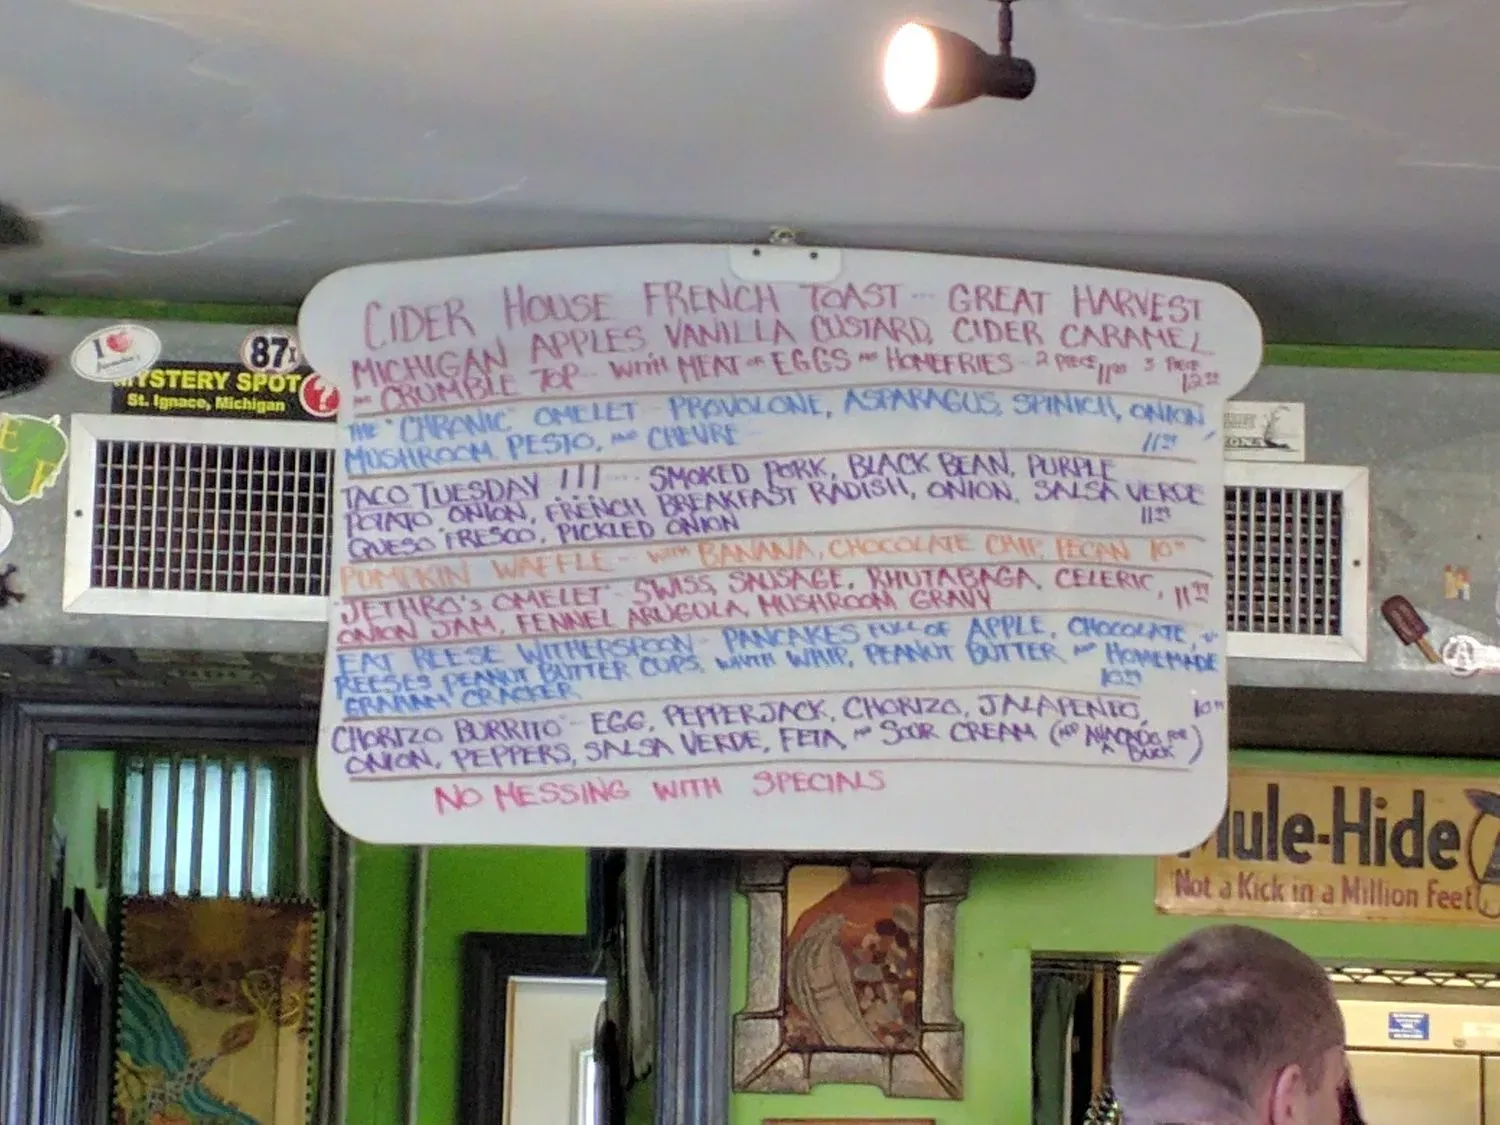 CIDER HOUSE FRENCH TOAST ... GREAT HARVEST
MICHIGAN APPLES VANILLA CUSTARD, CIDER CARAMEL
AND CRUMBLE TOP... WITH MEAT OR EGGS AND HOMEFRIES - 2 PIECE 11 3 PIECE 12
THE "CHRONIC" OMELET - PROVOLONE, ASPARAGUS, SPINICH, ONION,
MUSHROOM PESTO, AND CHEVRE - 11
TACO TUESDAY !!! ... SMOKED PORK, BLACK BEAN, PURPLE
POTATO ONION, FRENCH BREAKFAST RADISH, ONION, SALSA VERDE
QUESO FRESCO, PICKLED ONION 11
PUMPKIN WAFFLE - WITH BANANA, CHOCOLATE CHIP, PECAN 10
"JETHRO'S OMELET" - SWISS, SAUSAGE, RHUTABAGA, CELERIC,
ONION JAM, FENNEL ARUGULA, MUSHROOM GRAVY 11
EAT REESE WITHERSPOON - PANCAKES FULL OF APPLE, CHOCOLATE,
REESES PEANUT BUTTER CUPS, WITH WHIP, PEANUT BUTTER AND HOMEMADE
GRAHAM CRACKER 10
CHORIZO BURRITO - EGG, PEPPERJACK, CHORIZO, JALAPENO, 10
ONION, PEPPERS, SALSA VERDE, FETA, AND SOUR CREAM (ADD AVACADO FOR A BUCK)
NO MESSING WITH SPECIALS
I
87
MYSTERY SPOT
St. Ignace, Michigan
?
Mule-Hide
Not a Kick in a Million Feet